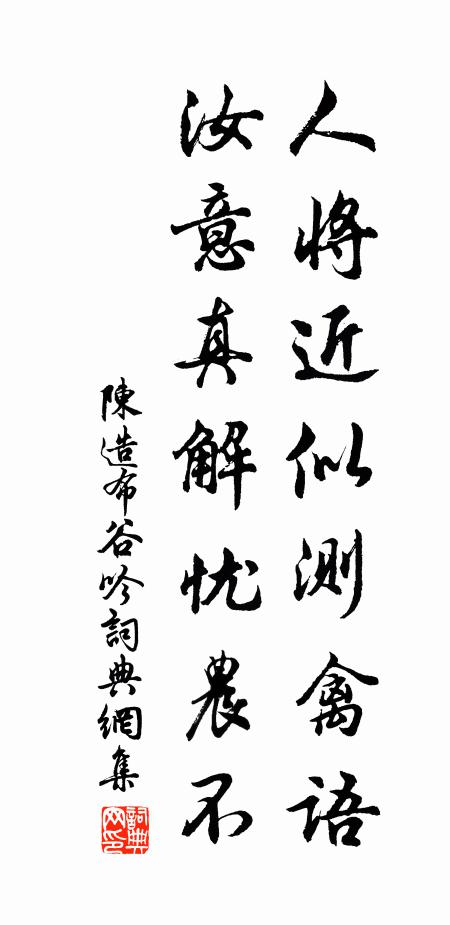 人將近似測禽語
汝意真解忧農不
陳造布谷吟詞典網集
詞典網印